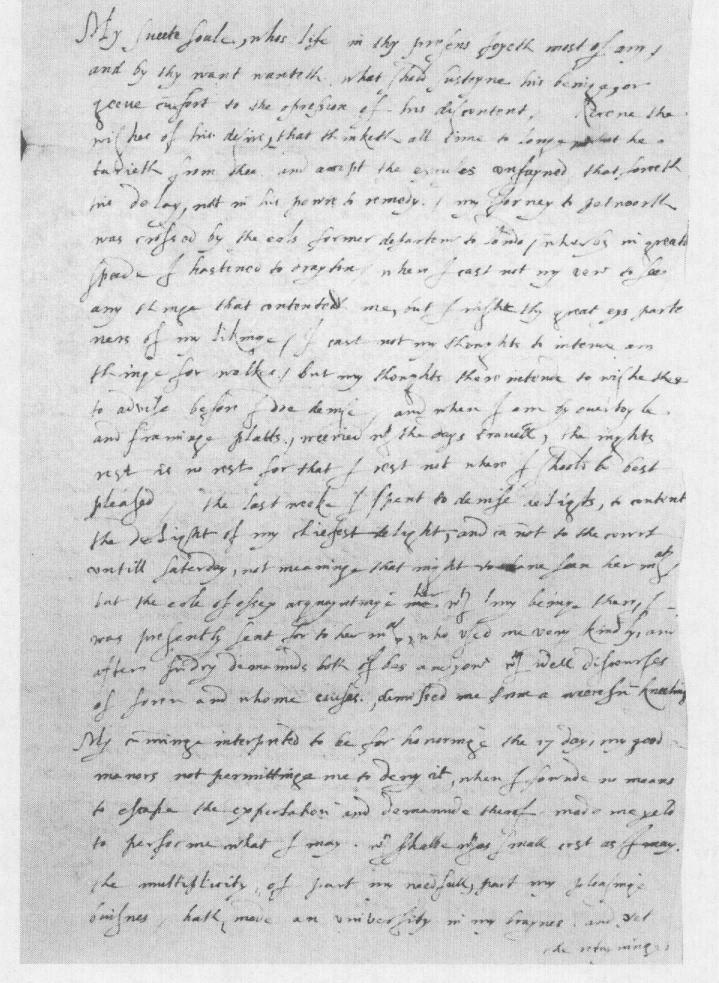 My sweete soule, whos life in thy presens joyeth most of any
and by thy want wanteth what shold susteyne his being
geeve cumfort to the opression of his discontent, Receve the
wishes of his desire, that thinketh all time to longe that he
tarieth from thee and accept the excuses unfayned that forceth
his delay, not in his powre to remedy. my Jorney to
was crossed by the eols former departeur to londo, wherby in great
speede I hastened to drayton, wher I cast not my iees to see
any thinge that contented me, but I wishte thy great eys parte
ners of my likinge, I cast not my thoughts to intende ani
thinge for walke, but my thoughts there intende to wishe thee
to advise before I doe devise, and when I am by
and framinge platts, weeried wt the days travell, the nights
rest is no rest for that I rest not wher I sholde be best
pleased, the last weeke I spent to devise delights, to content
the delight of my chiefest delight, and ca not to the court
untill Saterday, not meaninge that night to have seen her maty
but the eole of essex acquaytinge her wt my beinge there, I
was presently sent for to her maty, who used me very kindly, and
after sundry demands both of bes and yow wt well discourses
of foren and whome causes, demissed me from a kneeling
My cuminge interprited to be for honoringe the 17 day, my good
maners not permittinge me to deny it, wher I founde no means
to escape the expectation and demaunde therof made me yeld
to performe what I may. wt shalbe wt as small cost as I may.
the multiplicity, of part my needfull, part my pleasinge
buisnes, hath made an university in my braynes. and yet
the